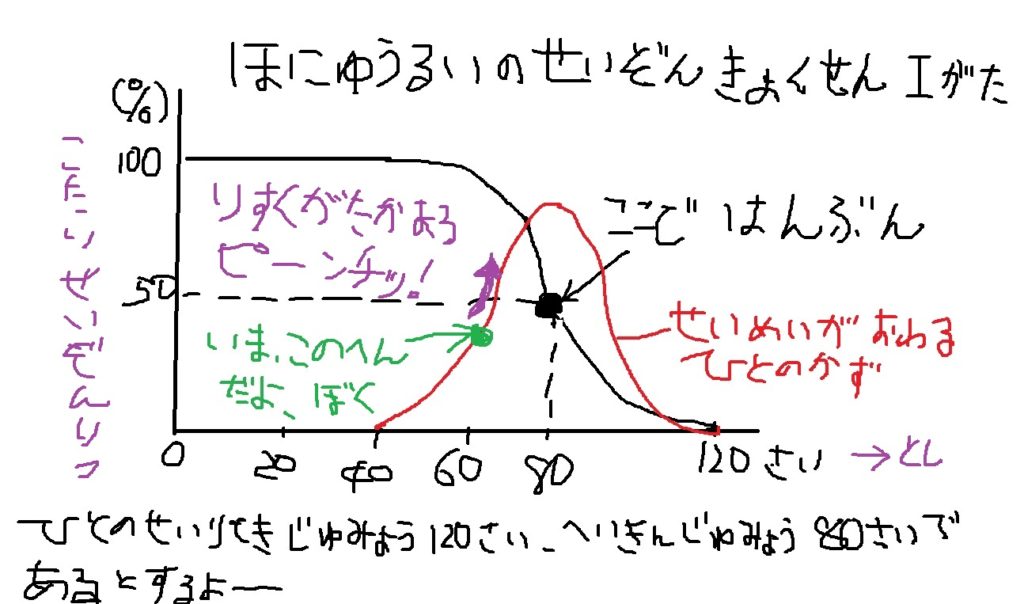 ほにゅうるいのせいぞんきょくせんIがた
(%)
100
50
こたいせいぞんりつ
りすくがたかまる
ピーンチッ!
ここで はんぶん
いま、このへん
だよ、ぼく
せいめいが おわる
ひとのかず
0 20 40 60 80 120 さい →とし
ひとのせいりてきじゅみょう120さい、へいきんじゅみょう80さいで
あるとするよー